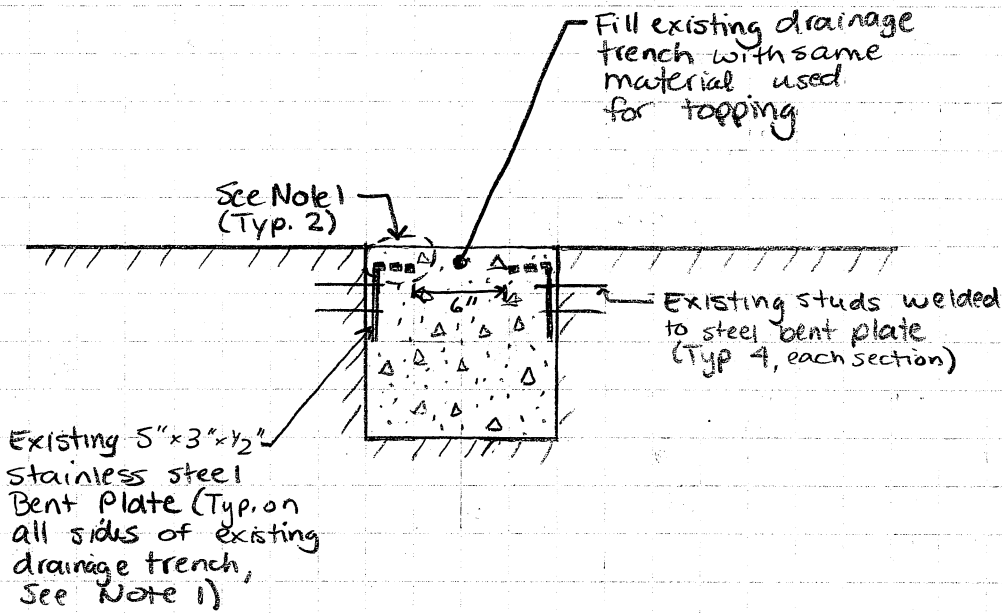 Fill existing drainage
trench with same
material used
for topping
See Note 1
(Typ. 2)
6"
Existing studs welded
to steel bent plate
(Typ 4, each section)
Existing 5"x3"x1/2"
stainless steel
Bent Plate (Typ. on
all sides of existing
drainage trench,
See Note 1)